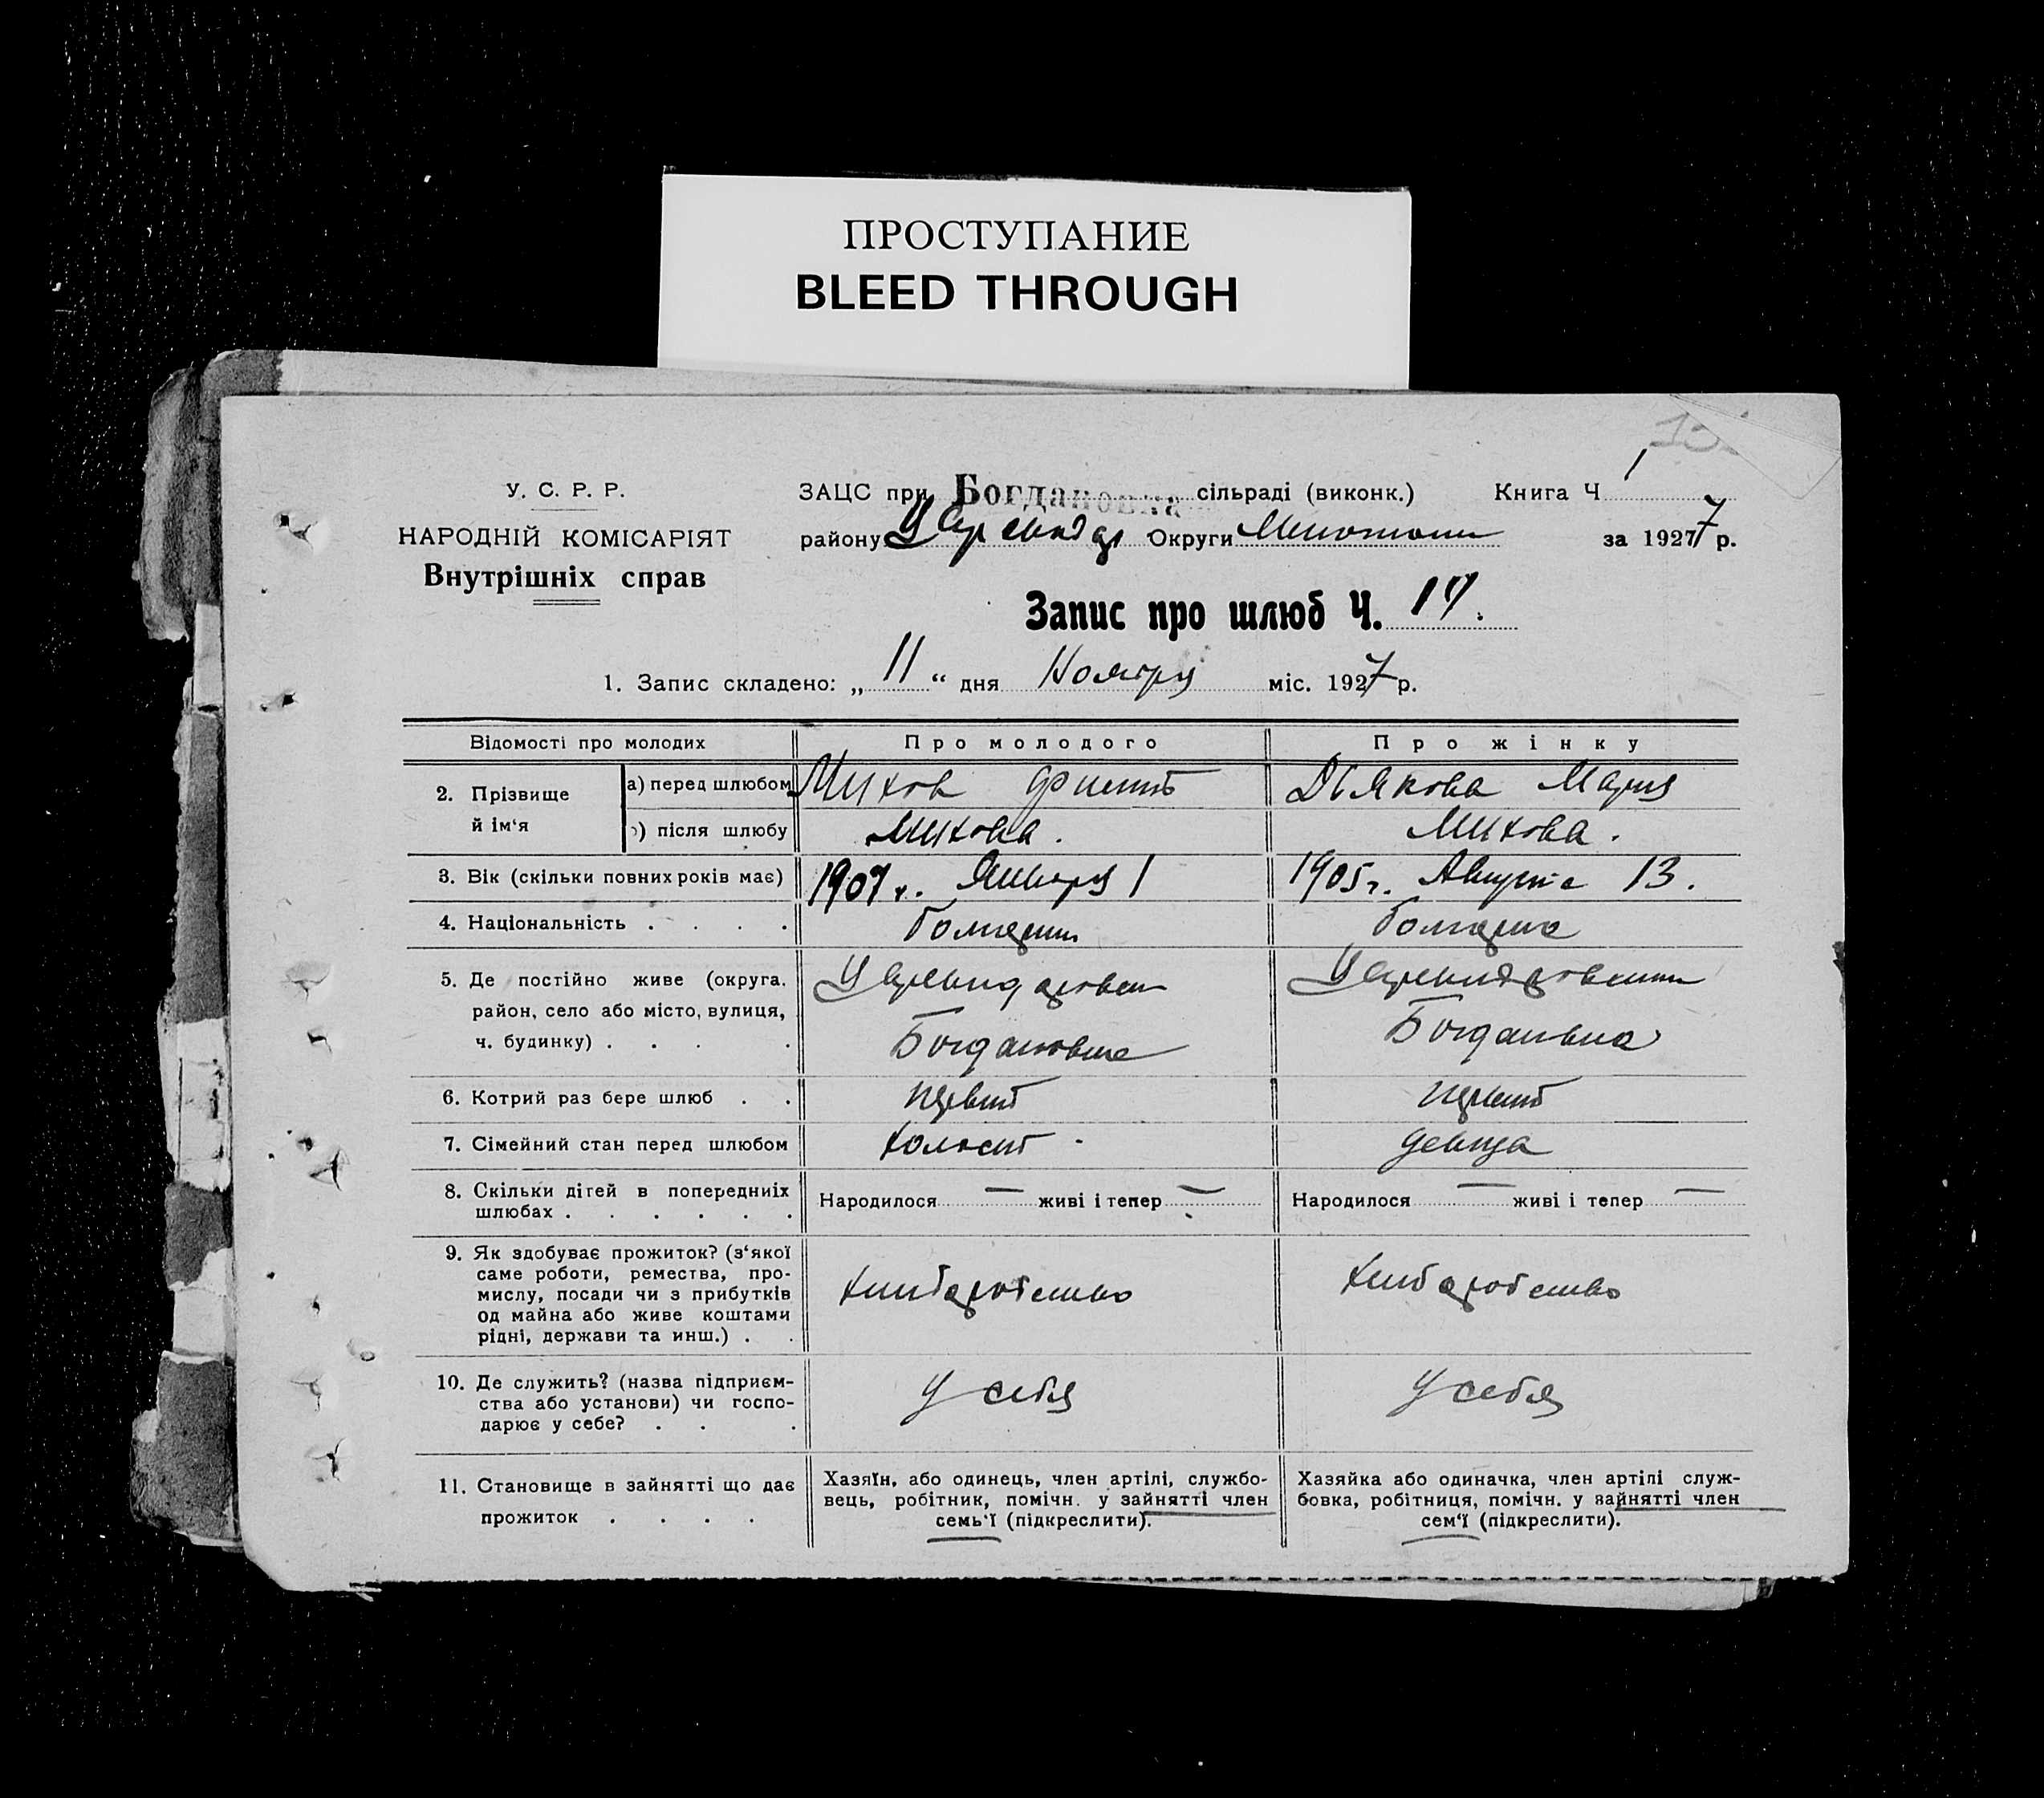 ПРОСТУПАНИЕ
BLEED THROUGH
У. С. Р. Р.
НАРОДНІЙ КОМІСАРІЯТ
Внутрішніх справ
ЗАЦС при Богдановка сільраді (виконк.) Книга Ч 1
району Округи за 1927 7 р.
Запис про шлюб Ч. 17.
1. Запис складено: „ 11 “ дня Ноября міс. 1927 р.
Відомості про молодих Про молодого Про жінку
2. Прізвище й ім‘я а) перед шлюбом Михов Дьякова Мария
після шлюбу Михова. Михова.
3. Вік (скільки повних років має) 1907 г. Января 1 1905 г. Августа 13.
4. Національність . . . . болгарин болгарка
5. Де постійно живе (округа,
район, село або місто, вулиця,
ч. будинку) . . . . Богдановка Богдановка
6. Котрий раз бере шлюб . . первый первый
7. Сімейний стан перед шлюбом холост. девица
8. Скільки дітей в попередниіх
шлюбах . . . . . . Народилося — живі і тепер — Народилося — живі і тепер —
9. Як здобуває прожиток? (з‘якої
саме роботи, ремества, про-
мислу, посади чи з прибутків
од майна або живе коштами
рідні, держави та инш.) . . хлибаробство хлибаробство
10. Де служить? (назва підприєм-
ства або установи) чи госпо-
дарює у себе? . . . у себя у себя
11. Становище в зайнятті що дає
прожиток . . . .
Хазяїн, або одинець, член артілі, службо-
вець, робітник, помічн. у зайнятті член
семь‘ї (підкреслити).
Хазяйка або одиначка, член артілі служ-
бовка, робітниця, помічн. у зайнятті член
сем‘ї (підкреслити).